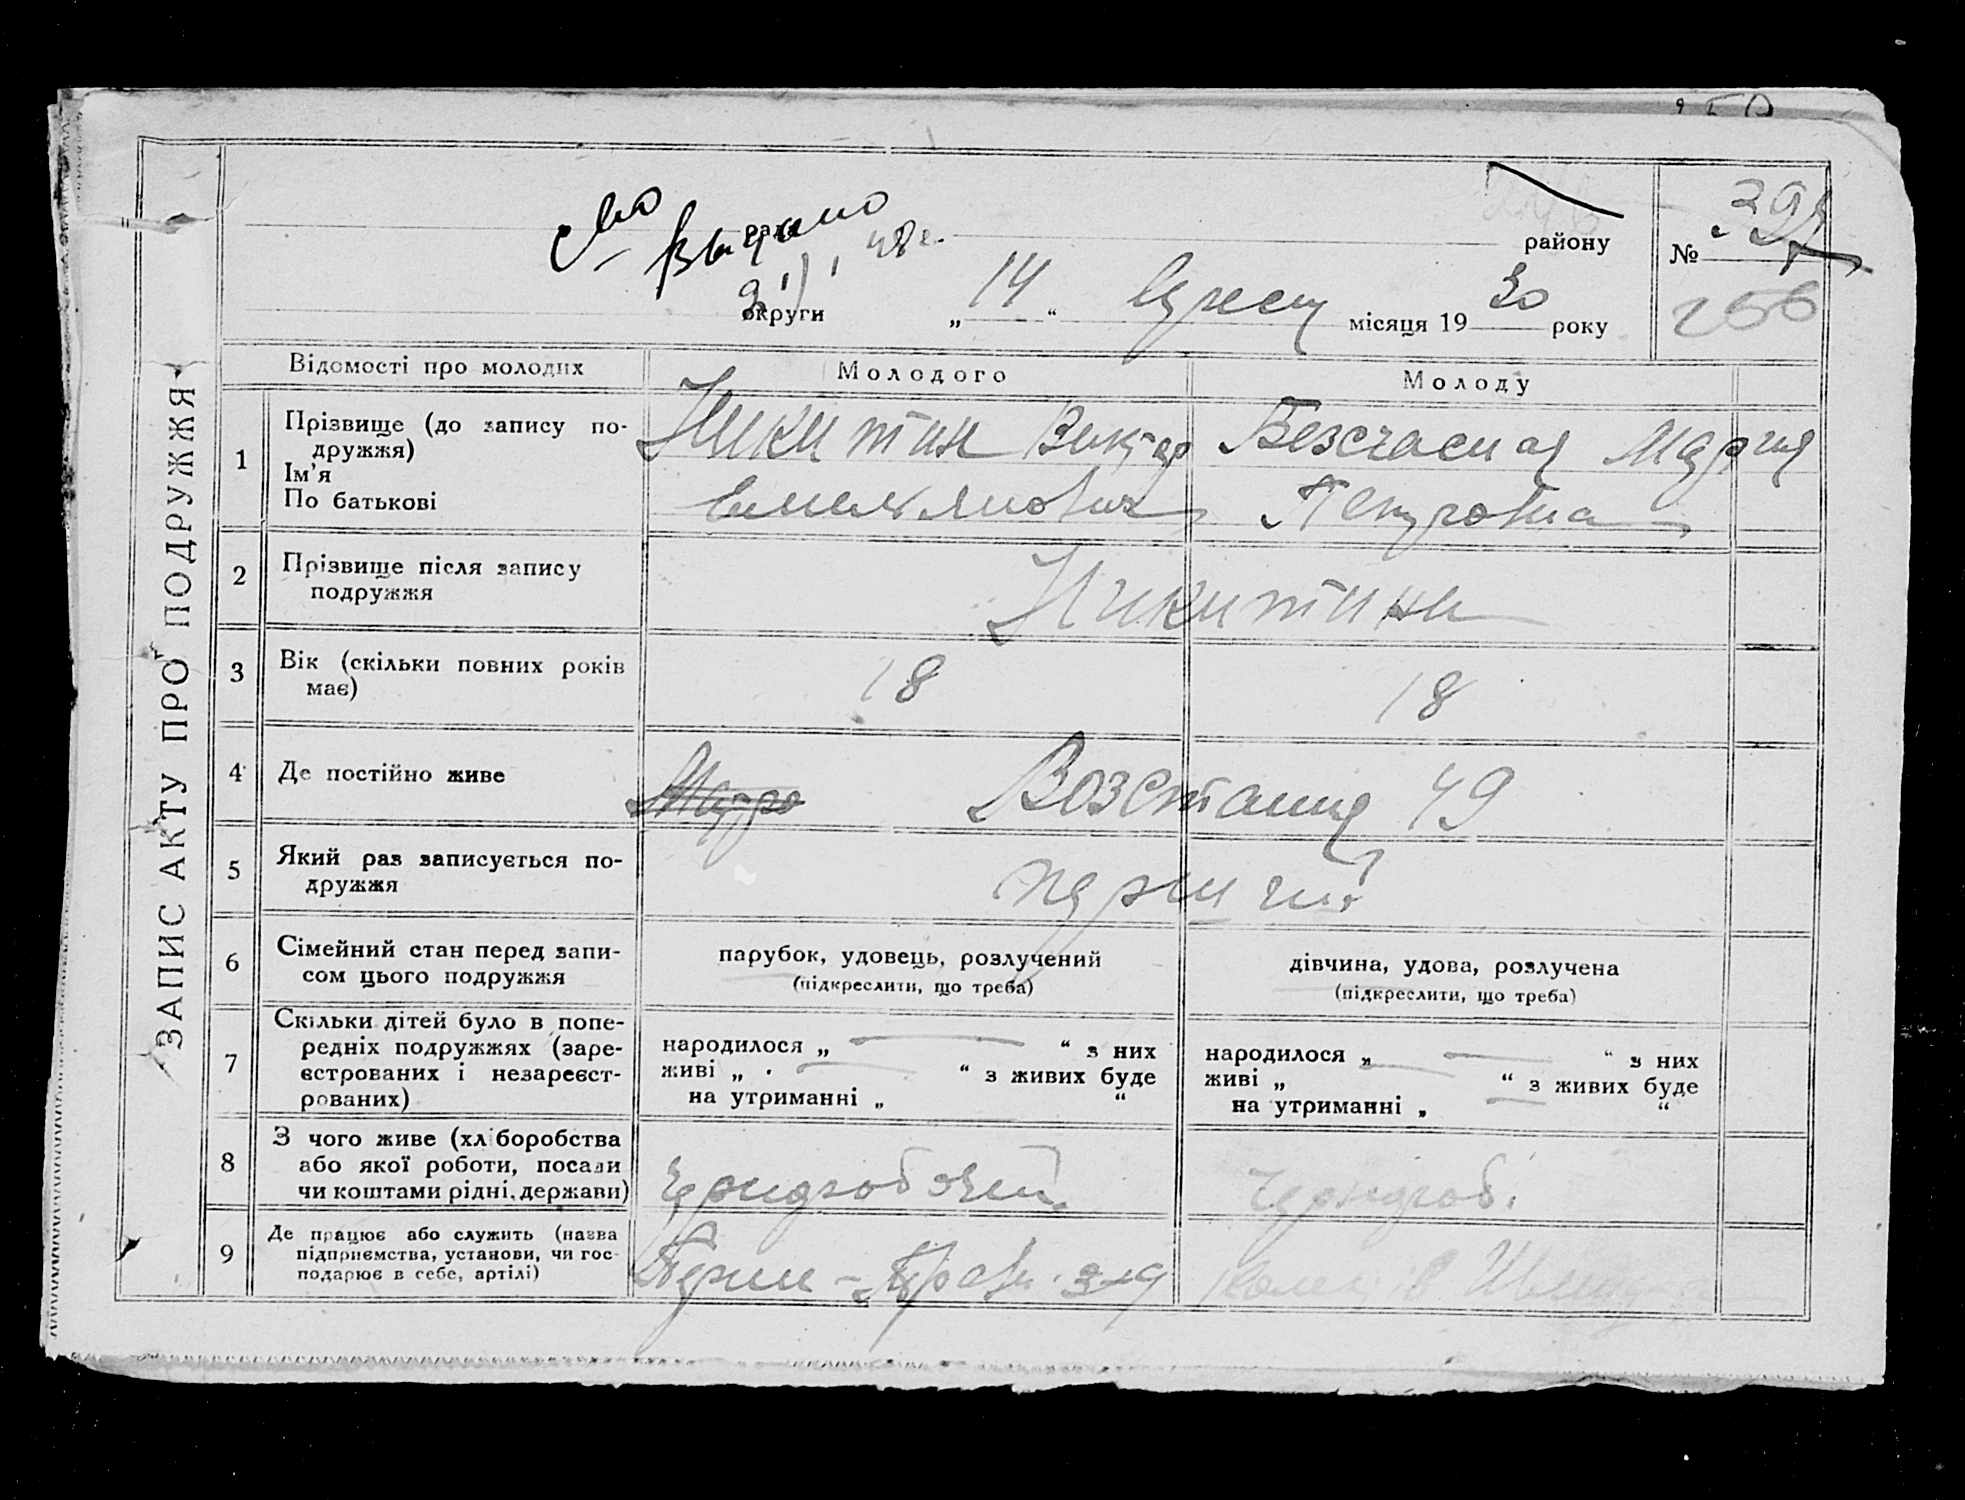 ЗАПИС АКТУ ПРО ПОДРУЖЖЯ
рада
району
№ 397
256
округи „14“ місяця 1930 року
Відомості про молодих
Молодого
Молоду
1
Прізвище (до запису по-
дружжя)
Ім'я
По батькові
Никитин Виктор
Емельянович
Безсчасная Мария
Петровна
2
Прізвище після запису
подружжя
Никитин
3
Вік (скільки повних років
має)
18
18
4
Де постійно живе
Возстания 49
5
Який раз записується по-
дружжя
перший
6
Сімейний стан перед запи-
сом цього подружжя
парубок, удовець, розлучений
(підкреслити, що треба)
дівчина, удова, розлучена
(підкреслити, що треба)
7
Скільки дітей було в попе-
редніх подружжях (заре-
єстрованих і незареєст-
рованих)
народилося „ — “ з них
живі „ — “ з живих буде
на утриманні „ “
народилося „ — “ з них
живі „ — “ з живих буде
на утриманні „ — “
8
З чого живе (хліборобства
або якої роботи, посади
чи коштами рідні, держави)
9
Де працює або служить (назва
підприємства, установи, чи гос-
подарює в себе, артілі)